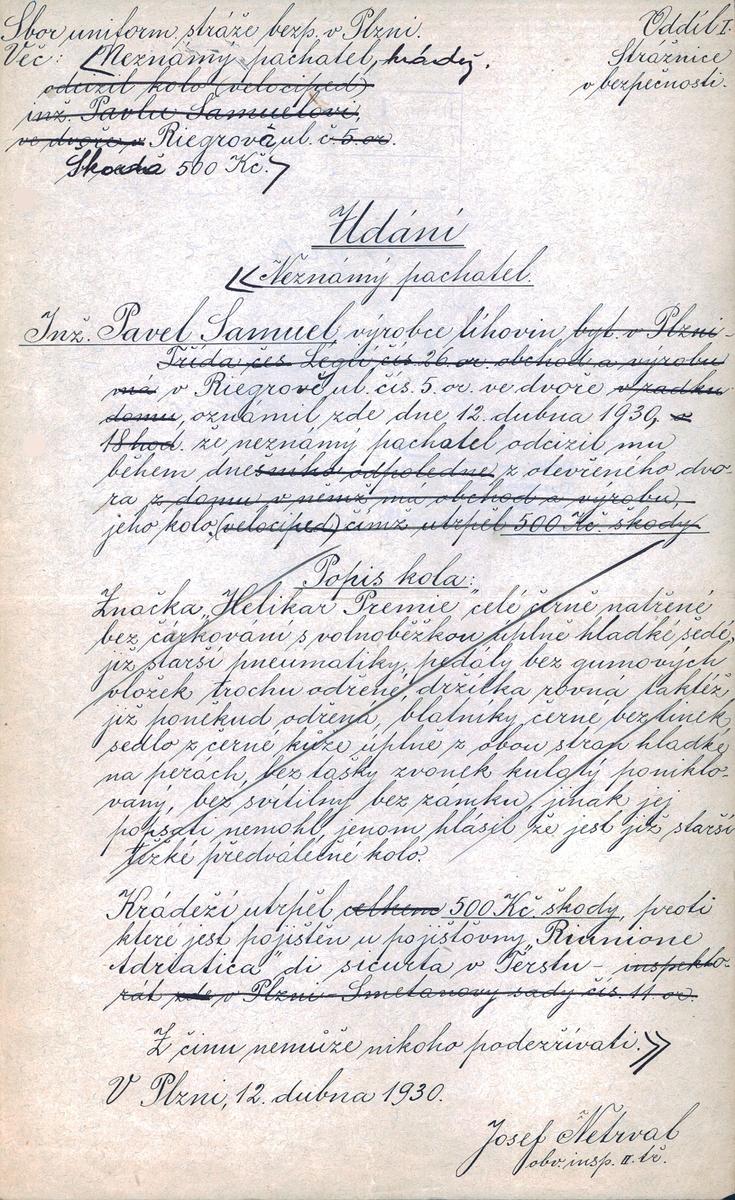 Sbor uniform. stráže bezp. v Plzni.
Oddíl I.
Věc: Neznámý pachatel, krádež.
Strážnice
odcizil kolo (velociped)
v bezpečnosti.
inž. Pavlu Samuelovi
ve dvoře v Riegrově ul. č. 5 or.
Škoda 500 Kč.
Udání
Neznámý pachatel.
Inž. Pavel Samuel, výrobce líhovin byt. v Plzni-
Třída čes. Legií čís. 26 or. obchod a výrobu
má v Riegrově ul. čís. 5. or. ve dvoře v zadku
domu, oznámil zde dne 12. dubna 1930, v
18 hod. že neznámý pachatel odcizil mu
během dnešního odpoledne, z otevřeného dvo-
ra z domu v němž má obchod a výrobu
jeho kolo, (velociped) čímž utrpěl 500 Kč. škody.
Popis kola:
Značka "Helikar Premie" celé černě natřené
bez čárkování s volnoběžkou úplně hladké šedé,
již starší pneumatiky, pedály bez gumových
vložek trochu odřené, držítka rovná taktéž
již poněkud odřená, blatníky černé bez linek
sedlo z černé kůže úplně z obou stran hladké
na perách, bez tašky zvonek kulatý poniklo-
vaný, bez svítilny bez zámku, jinak jej
popsati nemohl, jenom hlásil že jest již starší
těžké předválečné kolo.
Krádeží utrpěl celkem 500 Kč. škody, proti
které jest pojištěn u pojišťovny "Riunione
Adriatica" di sicurta v Terstu - inspekto-
rát zde v Plzni - Smetanovy sady čís. 11 or.
Z činu nemůže nikoho podezřívati.
V Plzni, 12. dubna 1930.
Josef Netrval
obv. insp. II. tř.